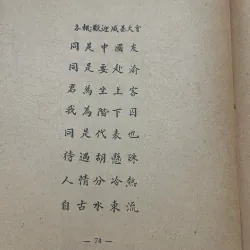 各報歡迎減甚大會
同是中國友
同是要赴渝
君為坐上客
我為階下囚
同是代表也
待遇胡懸殊
人情分冷熱
自古水東流
— 74 —